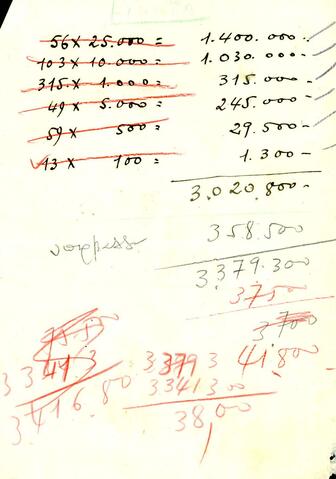 56 x 25.000 = 1.400.000.-
103 x 10.000 = 1.030.000.-
315 x 1.000 = 315.000-
49 x 5.000 = 245.000-
59 x 500 = 29.500-
13 x 100 = 1.300-
3.020.800-
358.500
3.379.300
3750
3700
41.800
3379 3
3341300
3800
3416.80